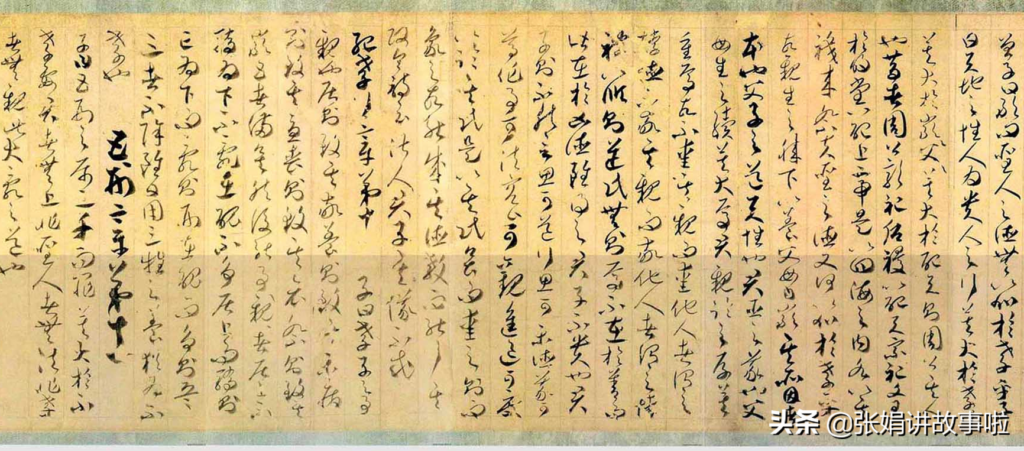 曾子曰敢問聖人之德無以加於孝乎子
曰天地之性人為貴人之行莫大於孝
莫大於嚴父莫大於配天則周公其人
也昔者周公郊祀后稷以配天宗祀文王
於明堂以配上帝是以四海之內各以其
職來祭夫聖人之德又何以加於孝乎
故親生之膝下以養父母日嚴其所因者
本也父子之道天性也君臣之義也父
母生之續莫大焉君親臨之厚莫
重焉故不愛其親而愛他人者謂之
悖德不敬其親而敬他人者謂之悖
禮以順則逆民無則焉不在於善而
皆在於凶德雖得之君子不貴也君
子則不然言思可道行思可樂德義可
尊作事可法容止可觀進退可度
以臨其民是以其民畏而愛之則而
象之故能成其德教而行其
政令詩云淑人君子其儀不忒
紀孝行章第十 子曰孝子之事
親也居則致其敬養則致其樂病
則致其憂喪則致其哀祭則致其
嚴五者備矣然後能事親者居上不
驕為下不亂在醜不爭居上而驕則
亡為下而亂則刑在醜而爭則兵
三者不除雖日用三牲之養猶為不
孝也 五刑章第十一
子曰五刑之屬三千而罪莫大於不
孝要君者無上非聖人者無法非孝
者無親此大亂之道也
头条 @张娟讲故事啦